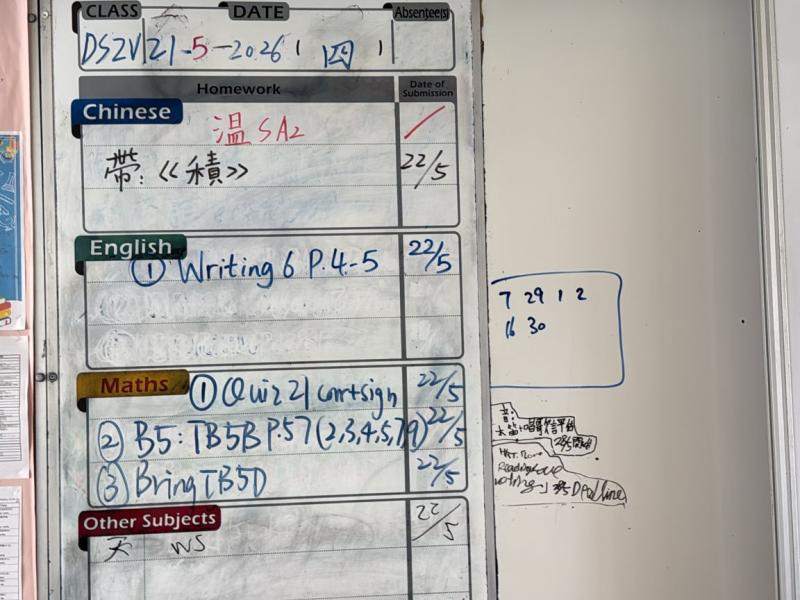 CLASS DATE Absentee(s)
DS2V 21-5-2026 ( 四 )
Homework Date of Submission
Chinese
温 SA2 /
帶:《積》 22/5
English
① Writing 6 P.4-5 22/5
Maths
① Quiz 21 corr+sign 22/5
② B5: TB5B P.57 (2,3,4,5,7,9) 22/5
③ Bring TB5D 22/5
Other Subjects
WS 22/5
7 29 1 2
16 30
音:
Reading
Deadline